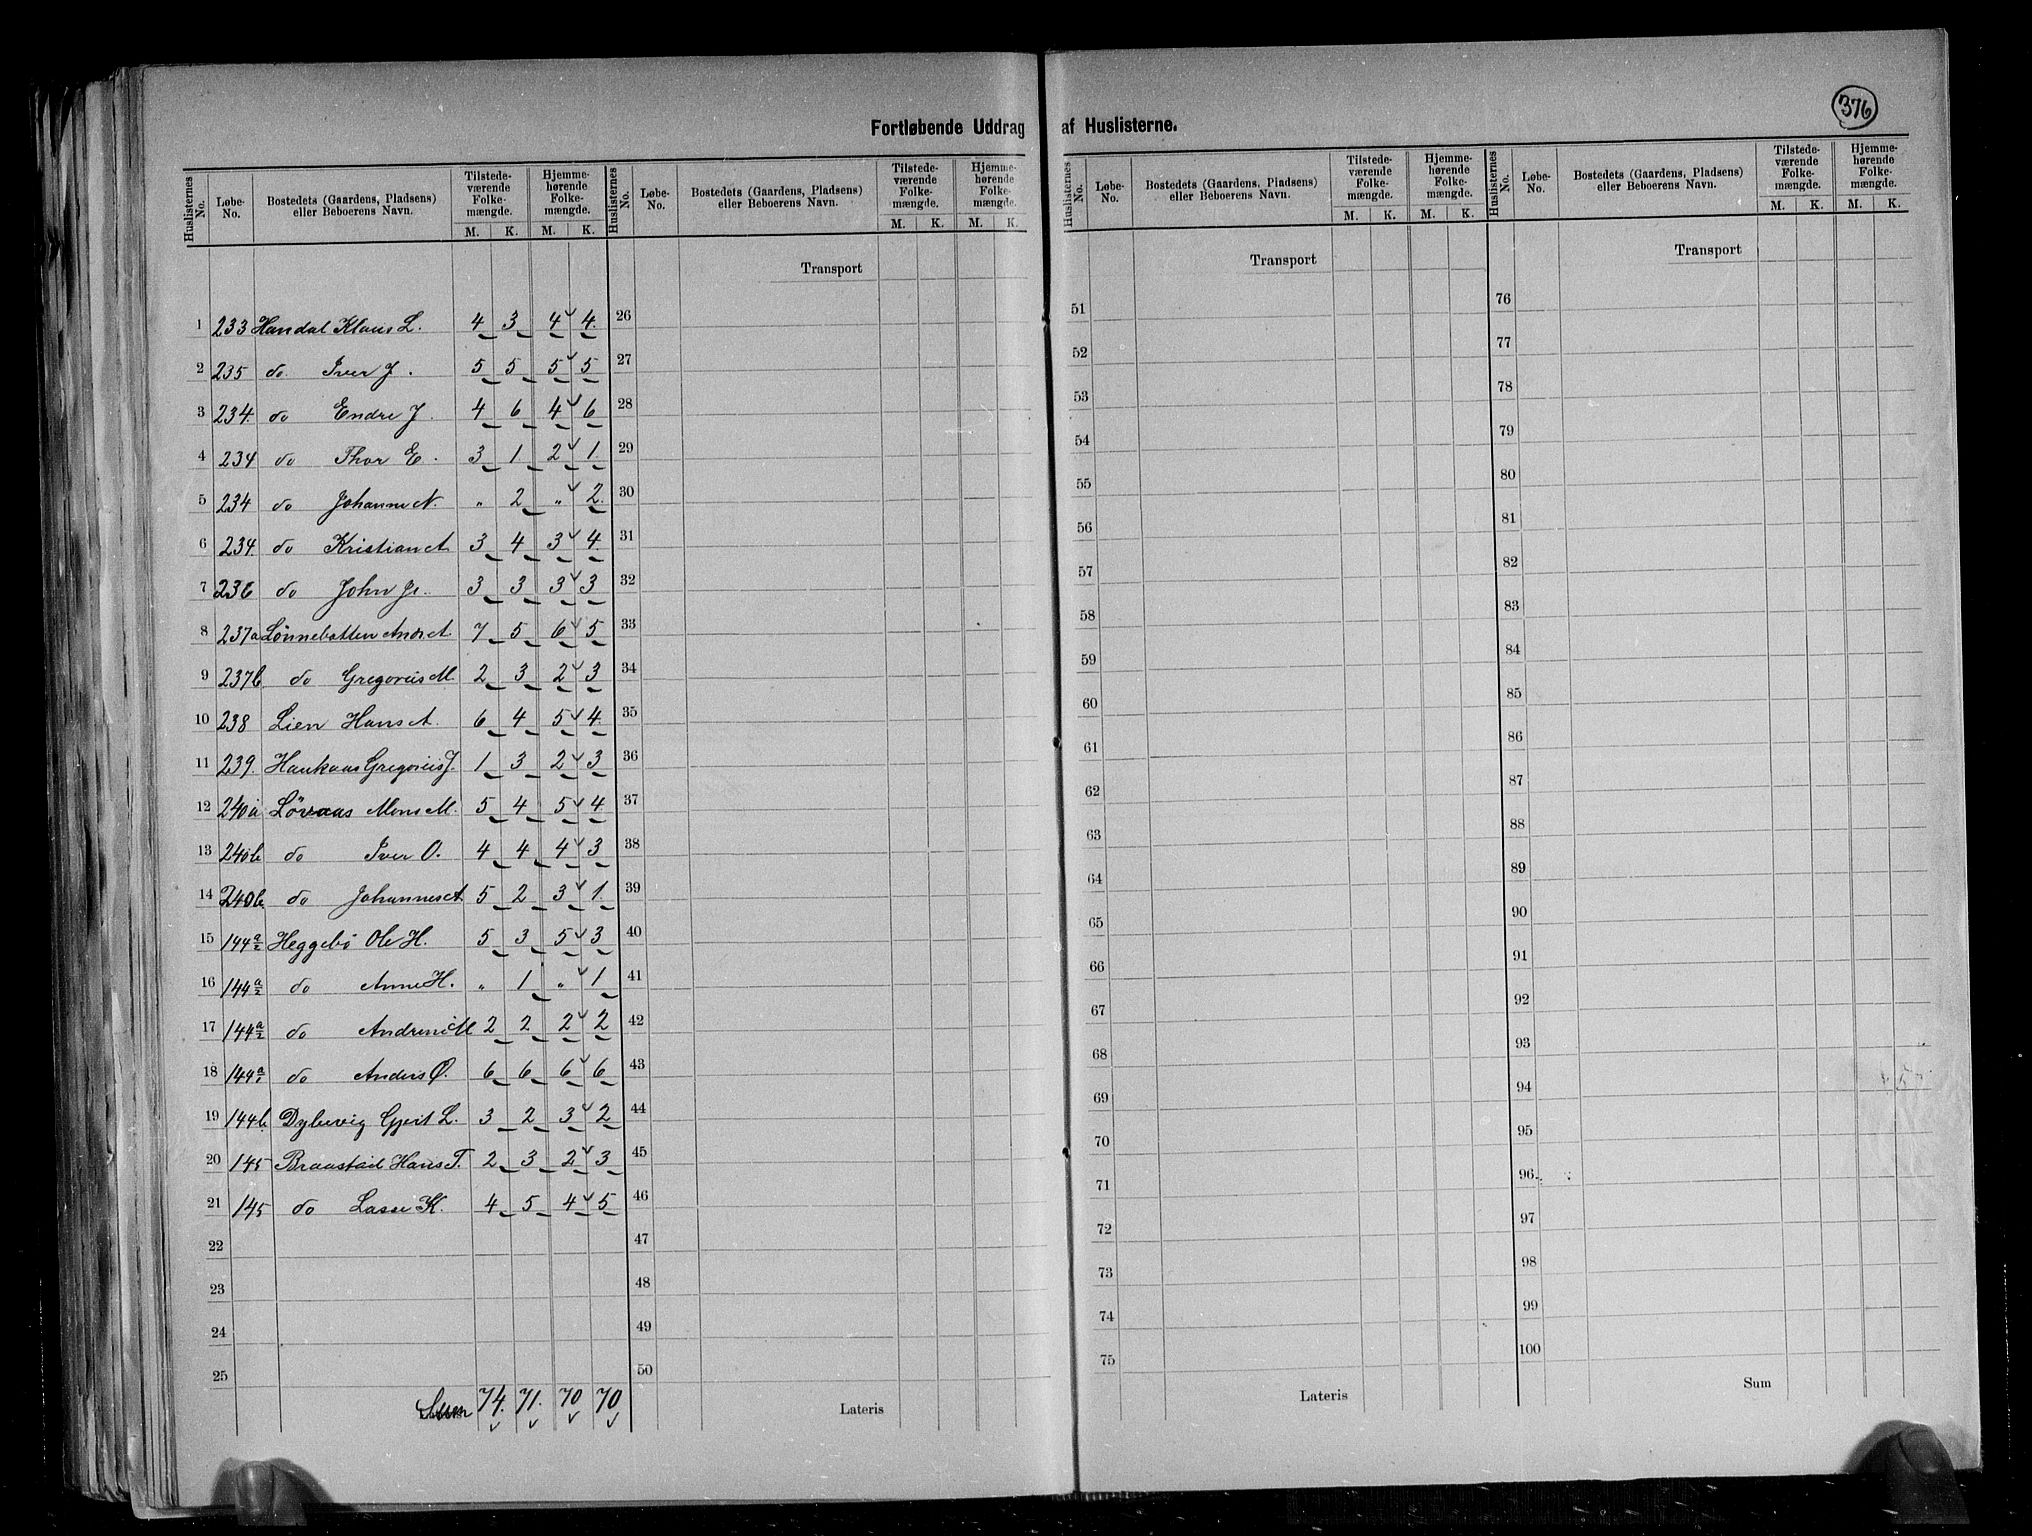 376
Fortløbende Uddrag af Huslisterne.
Huslisternes No. Løbe-No. Bostedets (Gaardens, Pladsens) eller Beboerens Navn. Tilstede-værende Folke-mængde. M. K. Hjemme-hørende Folke-mængde. M. K.
Huslisternes No. Løbe-No. Bostedets (Gaardens, Pladsens) eller Beboerens Navn. Tilstede-værende Folke-mængde. M. K. Hjemme-hørende Folke-mængde. M. K.
Huslisternes No. Løbe-No. Bostedets (Gaardens, Pladsens) eller Beboerens Navn. Tilstede-værende Folke-mængde. M. K. Hjemme-hørende Folke-mængde. M. K.
Huslisternes No. Løbe-No. Bostedets (Gaardens, Pladsens) eller Beboerens Navn. Tilstede-værende Folke-mængde. M. K. Hjemme-hørende Folke-mængde. M. K.
1 233 Handal Klaus L. 4 3 4 4
2 235 do. Iver J. 5 5 5 5
3 234. do Endre J. 4 6 4 6
4 234 do Thor E. 3 1 2 1
5 234 do Johanne N. " 2 " 2
6 234 do Kristian A 3 4 3 4
7 236 do John Jr. 3 3 3 3
8 237a Lönnebotten Andr. A 7 5 6 5
9 237b do Gregorius M 2 3 2 3
10 238 Lien Hans A. 6 4 5 4
11 239. Haukaas Gregorius J. 1 3 2 3
12 240a Lövaas Mons M. 5 4 5 4
13 240b do Iver O. 4 4 4 3
14 240b do Johannes A 5 2 3 1
15 144 a/2 Heggebö Ole H. 5 3 5 3
16 144 a/2 do Anne H. " 1 " 1
17 144 a/2 do Andreas M 2 2 2 2
18 144 a/1 do Anders Ø. 6 6 6 6
19 144b Dybevig Gjert L. 3 2 3 2
20 145 Braastad Hans T. 2 3 2 3
21 145 do Lasse K. 4 5 4 5
22
23
24
25
Sum 74. 71. 70 70
Transport
26
27
28
29
30
31
32
33
34
35
36
37
38
39
40
41
42
43
44
45
46
47
48
49
50
Lateris
Transport
51
52
53
54
55
56
57
58
59
60
61
62
63
64
65
66
67
68
69
70
71
72
73
74
75
Lateris
Transport
76
77
78
79
80
81
82
83
84
85
86
87
88
89
90
91
92
93
94
95
96
97
98
99
100
Sum